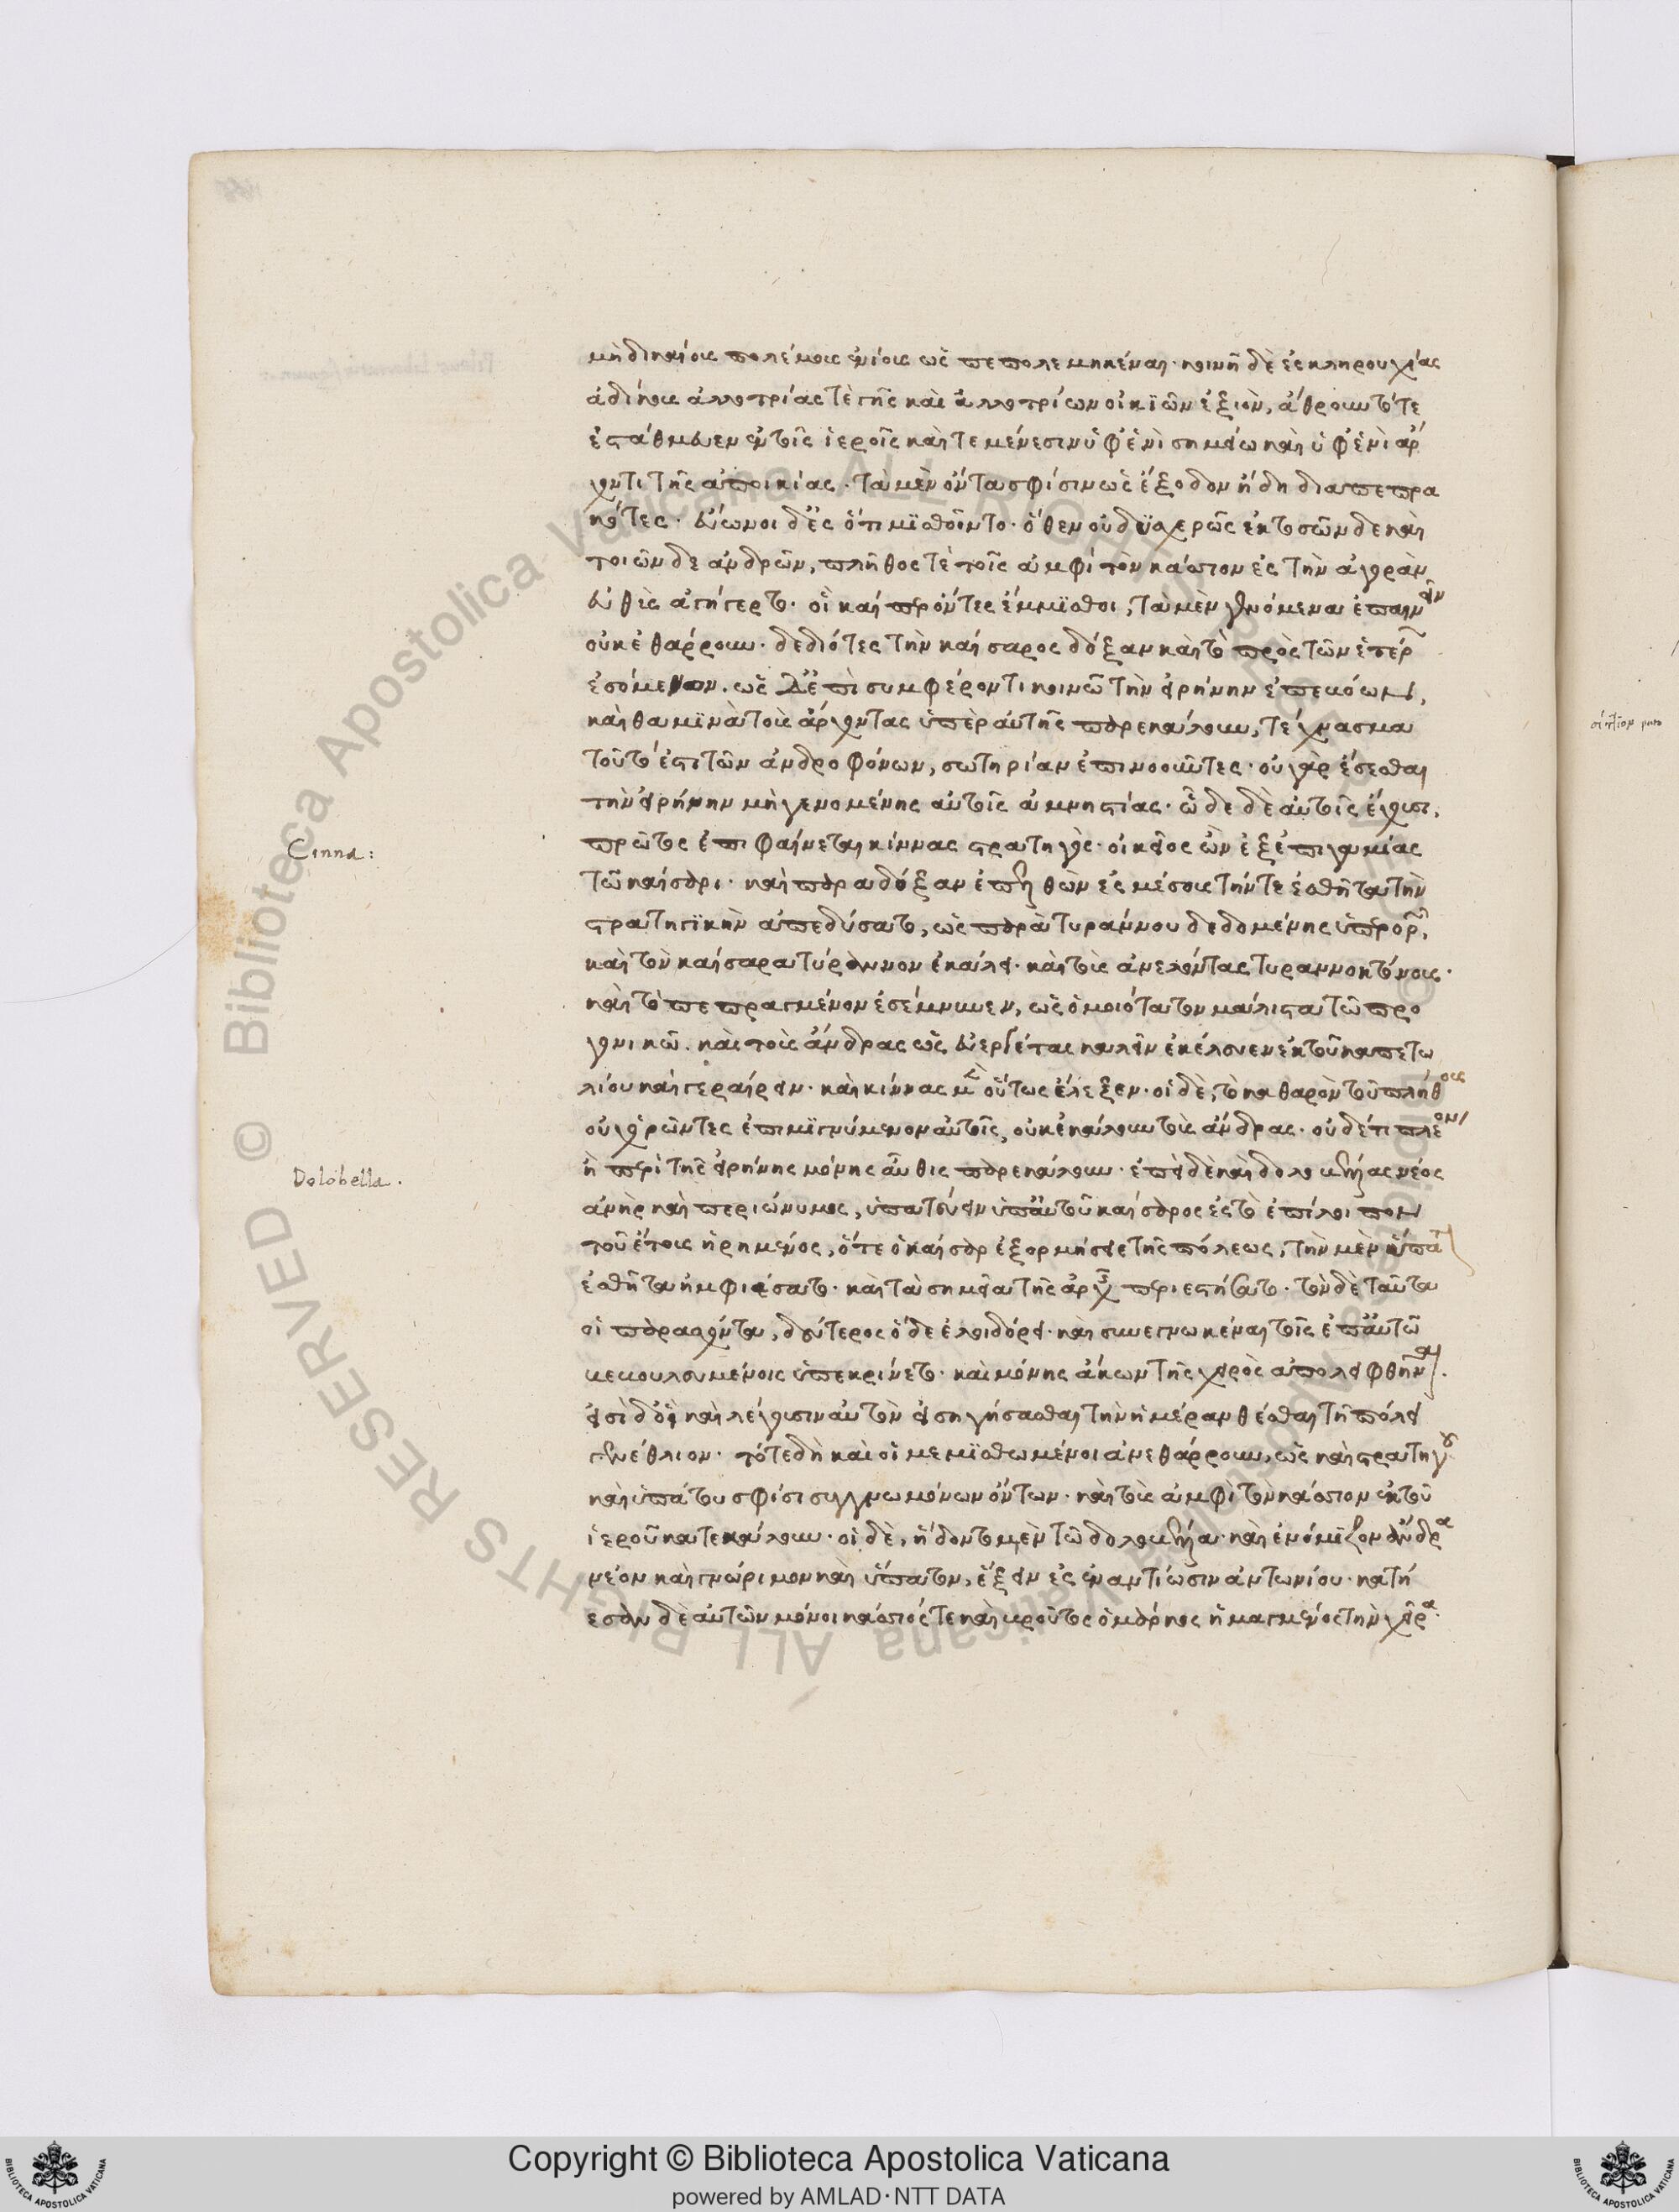 μὴ δικαίοις πολέμοις ἐνίοις ὡς πεπολεμηκέναι· κοινῇ δὲ ἐς κληρουχίας
ἀδίκους ἀλλοτρίας τὲ γῆς καὶ ἀλλοτρίων οἰκϊῶν ἐξιὸν, ἄθρουν τότε
ἐστάθμευεν ἐν τοῖς ἱεροῖς καὶ τεμένεσιν ὑφ' ἑνὶ σημείῳ καὶ ὑφ' ἑνὶ ἄρ
χοντι τῆς ἀποικίας· τὰ μὲν ὄντα σφίσιν ὡς ἐς ἔξοδον ἤδη διαπεπρα
κότες· εὔωνοι δ' ἐς ὅτι μϊσθοῖντο· ὅθεν οὐ δυσχερῶς ἐκ τοσῶνδε καὶ
τοιῶνδε ἀνδρῶν, πλῆθός τὲ τοῖς ἀμφὶ τὸν κάσσιον ἐς τὴν ἀγορὰν
εὐθὺς ἀγήγερτο· οἳ καίπερ ὄντες ἔμμϊσθοι, τὰ μὲν γενόμενα ἐπαινεῖν
οὐκ ἐθάρρουν· δεδιότες τὴν καίσαρος δόξαν καὶ τὸ πρὸς τῶν ἑτέρων
ἐσόμενον. ὡς δ' ἐπὶ συμφέροντι κοινῷ τὴν εἰρήνην ἐπεβόων,
καὶ θαμϊνὰ τοὺς ἄρχοντας ὑπὲρ αὐτῆς παρεκάλουν, τέχνασμα
τοῦτο ἐς τῶν ἀνδροφόνων, σωτηρίαν ἐπινοοῦντες· οὐ γὰρ ἔσεσθαι
τὴν εἰρήνην μὴ γενομένης αὐτοῖς ἀμνηστίας· ὧδε δὲ αὐτοῖς ἔχουσι,
πρῶτος ἐπιφαίνεται κίννας στρατηγὸς· οἰκεῖος ὢν ἐξ ἐπιγαμίας
τῷ καίσαρι· καὶ παρὰ δόξαν ἐπελθὼν ἐς μέσους τήν τε ἐσθῆτα τὴν
στρατηγϊκὴν ἀπεδύσατο, ὡς παρὰ τυράννου δεδομένης ὑπερορῶν,
καὶ τὸν καίσαρα τύραννον ἐκάλει· καὶ τοὺς ἀνελόντας τυραννοκτόνους·
καὶ τὸ πεπραγμένον ἐσέμνυνεν, ὡς ὁμοιότατον μάλιστα τῷ προ
γονικῷ. καὶ τοὺς ἄνδρας ὡς εὐεργέτας καλεῖν ἐκέλευεν ἐκ τοῦ καπετω
λίου καὶ γεραίρειν· καὶ κίννας μὲν οὕτως ἔλεξεν· οἱ δὲ, τὸ καθαρὸν τοῦ πλήθους
οὐχ ὁρῶντες ἐπιμϊγνύμενον αὐτοῖς, οὐκ ἐκάλουν τοὺς ἄνδρας· οὐδέ τι πλέον
ἢ περὶ τῆς εἰρήνης μόνης αὖθις παρεκάλουν· ἐπεὶ δὲ καὶ δολοβέλλας νέος
ἀνὴρ καὶ περιώνυμος, ὑπατεύειν ὑπ' αὐτοῦ καίσαρος ἐς τὸ ἐπίλοιπον
τοῦ ἔτους ᾑρημένος, ὅτε ὁ καίσαρ ἐξορμήσειε τῆς πόλεως, τὴν μὲν ὕπατον
ἐσθῆτα ἠμφιέσατο· καὶ τὰ σημεῖα τῆς ἀρχῆς περιεστήσατο· τὸν δὲ ταῦτα
οἱ παρασχόντα, δεύτερος ὅδε ἐλοιδόρει· καὶ συνεγνωκέναι τοῖς ἐπ' αὐτῷ
βεβουλευμένοις ὑπεκρίνετο· καὶ μόνης ἄκων τῆς χειρὸς ἀπολειφθῆναι.
εἰσὶ δ' οἳ καὶ λέγουσιν αὐτὸν εἰσηγήσασθαι τὴν ἡμέραν θέσθαι τῇ πόλει
γενέθλιον· τότε δὴ καὶ οἱ μεμϊσθωμένοι ἀνεθάρρουν, ὡς καὶ στρατηγοῦ
καὶ ὑπάτου σφίσι συγγνωμόνων ὄντων· καὶ τοὺς ἀμφὶ τὸν κάσσιον ἐκ τοῦ
ἱεροῦ κατεκάλουν· οἱ δὲ, ἥδοντο μὲν τῷ δολοβέλλα· καὶ ἐνόμϊζον ἄνδρα
νέον καὶ γνώριμον καὶ ὕπατον, ἕξειν ἐς ἐναντίωσιν ἀντωνίου· κατῄ
εσαν δὲ αὐτῶν μόνοι κάσσιός τε καὶ βροῦτος ὁ μάρκος ᾑμαγμένος τὴν χεῖρα.
Cinna:
Dolobella.